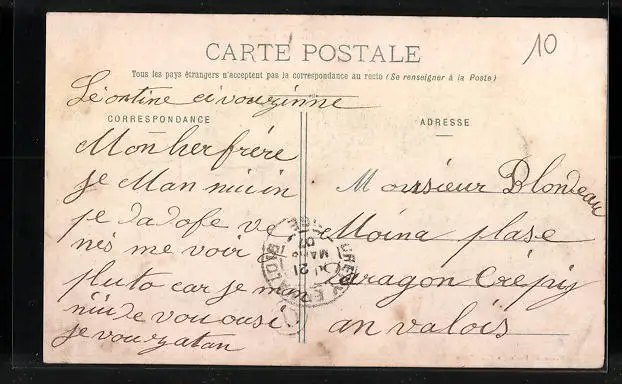 10
CARTE POSTALE
Tous les pays étrangers n'acceptent pas la correspondance au recto (Se renseigner à la Poste)
Léontine
CORRESPONDANCE
Mon her frére
je Man nui in
pe dadofe ve
nés me voir
pluto car je man
nui de vou ousi
je vou zatan
ADRESSE
Monsieur Blondeau
Moina plase
daragon Crépy
an valois